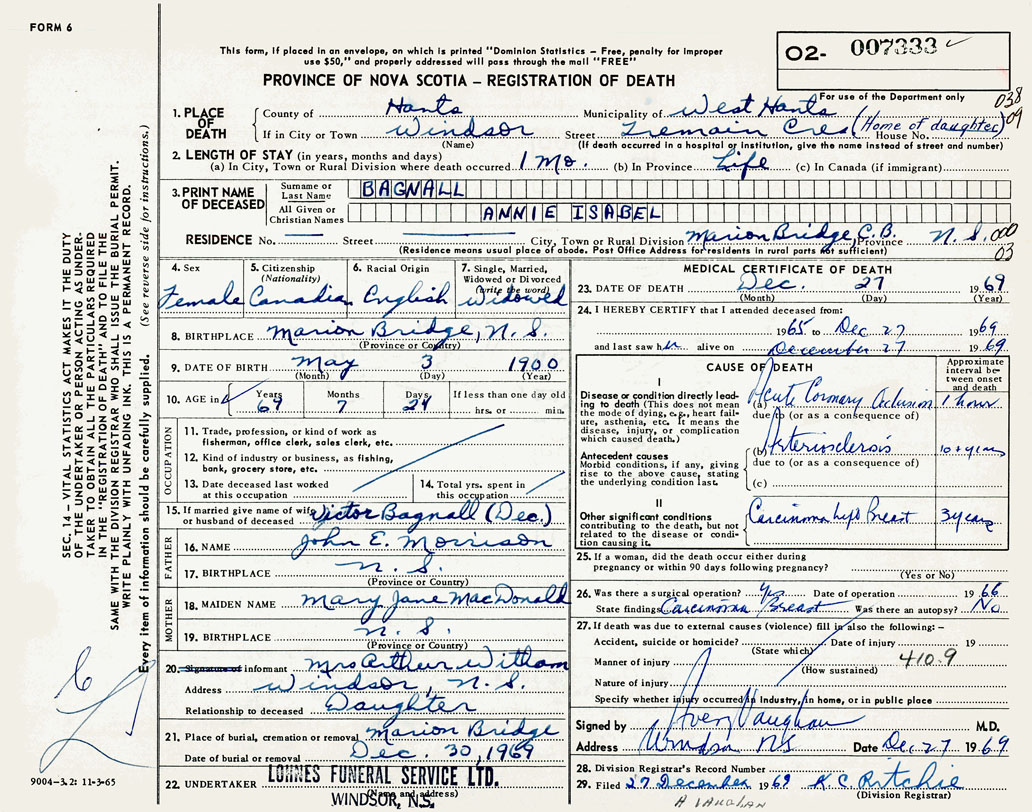 FORM 6
This form, if placed in an envelope, on which is printed "Dominion Statistics – Free, penalty for improper
use $50," and properly addressed will pass through the mail "FREE"
PROVINCE OF NOVA SCOTIA – REGISTRATION OF DEATH
O2- 007333
For use of the Department only
038
09
1. PLACE OF DEATH
County of Hants Municipality of West Hants
If in City or Town Windsor Street Tremain Cres (Home of daughter) House No.
(Name) (If death occurred in a hospital or institution, give the name instead of street and number)
2. LENGTH OF STAY (in years, months and days)
(a) In City, Town or Rural Division where death occurred 1 Mo. (b) In Province Life (c) In Canada (if immigrant)
3. PRINT NAME OF DECEASED
Surname or Last Name BAGNALL
All Given or Christian Names ANNIE ISABEL
RESIDENCE No. Street City, Town or Rural Division Marion Bridge, C.B. Province N.S. 000
(Residence means usual place of abode. Post Office Address for residents in rural parts not sufficient) 03
4. Sex Female
5. Citizenship (Nationality) Canadian
6. Racial Origin English
7. Single, Married, Widowed or Divorced (write the word) Widowed
8. BIRTHPLACE Marion Bridge, N.S.
(Province or Country)
9. DATE OF BIRTH May 3 1900
(Month) (Day) (Year)
10. AGE in Years 69 Months 7 Days 24 If less than one day old
hrs. or min.
OCCUPATION
11. Trade, profession, or kind of work as
fisherman, office clerk, sales clerk, etc.
12. Kind of industry or business, as fishing,
bank, grocery store, etc.
13. Date deceased last worked
at this occupation
14. Total yrs. spent in
this occupation
15. If married give name of wife
or husband of deceased Victor Bagnall (Dec.)
FATHER
16. NAME John E. Morrison
17. BIRTHPLACE N.S.
(Province or Country)
MOTHER
18. MAIDEN NAME Mary Jane MacDonald
19. BIRTHPLACE N.S.
(Province or Country)
20. Signature of informant Mrs Arthur Witham
Address Windsor, N.S.
Relationship to deceased Daughter
21. Place of burial, cremation or removal Marion Bridge
Date of burial or removal Dec. 30, 1969
22. UNDERTAKER LOHNES FUNERAL SERVICE LTD.
(Name and address)
WINDSOR, N.S.
MEDICAL CERTIFICATE OF DEATH
23. DATE OF DEATH Dec. 27 1969
(Month) (Day) (Year)
24. I HEREBY CERTIFY that I attended deceased from:
1965 to Dec 27 1969
and last saw her alive on December 27 1969
CAUSE OF DEATH
Approximate interval between onset and death
I
Disease or condition directly leading to death (This does not mean the mode of dying, e.g., heart failure, asthenia, etc. It means the disease, injury, or complication which caused death.)
(a) Acute Coronary Occlusion 1 hour
due to (or as a consequence of)
Antecedent causes
Morbid conditions, if any, giving rise to the above cause, stating the underlying condition last.
(b) Arteriosclerosis 10 + years
due to (or as a consequence of)
(c)
II
Other significant conditions
contributing to the death, but not related to the disease or condition causing it.
Carcinoma Left Breast 3 years
25. If a woman, did the death occur either during
pregnancy or within 90 days following pregnancy?
(Yes or No)
26. Was there a surgical operation? Yes Date of operation 1966
State findings Carcinoma Breast Was there an autopsy? No
27. If death was due to external causes (violence) fill in also the following:–
Accident, suicide or homicide? Date of injury 19
(State which)
Manner of injury 410.9
(How sustained)
Nature of injury
Specify whether injury occurred in industry, in home, or in public place
Signed by Avery Vaughan M.D.
Address Windsor NS Date Dec 27 1969
28. Division Registrar's Record Number
29. Filed 27 December 1969 K C Ritchie
(Division Registrar)
A VAUGHAN
SEC. 14 – VITAL STATISTICS ACT MAKES IT THE DUTY
OF THE UNDERTAKER OR PERSON ACTING AS UNDER-
TAKER TO OBTAIN ALL THE PARTICULARS REQUIRED
IN THE "REGISTRATION OF DEATH" AND TO FILE THE
SAME WITH THE DIVISION REGISTRAR WHO SHALL ISSUE THE BURIAL PERMIT.
WRITE PLAINLY WITH UNFADING INK. THIS IS A PERMANENT RECORD.
Every item of information should be carefully supplied. (See reverse side for instructions.)
9004–3.2: 11-3-65